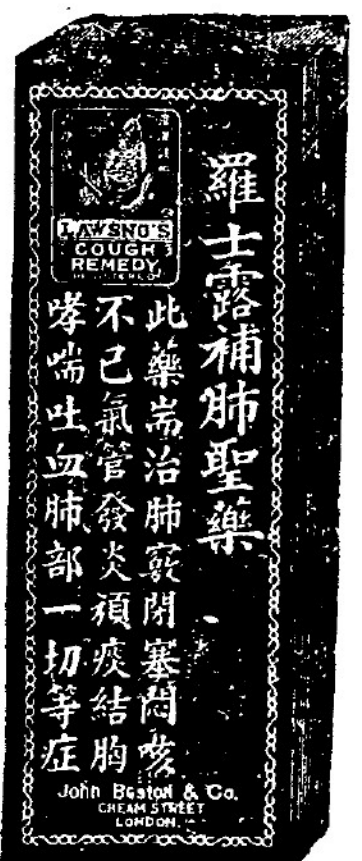 羅士露補肺聖藥
LAWSNO'S
COUGH
REMEDY
此藥耑治肺竅閉塞悶咳
不已氣管發炎頑痰結胸
哮喘吐血肺部一切等症
John Boston & Co.
CHEAM STREET
LONDON.